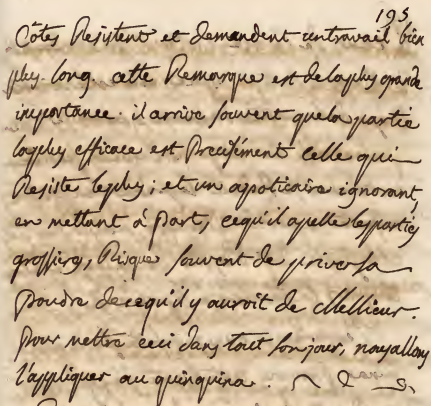 195
Côtes Resistent et demandent untravail bien
plus long. cette Remarque est delaplus grande
importance. il arrive souvent quela partie
laplus efficace est Precisément celle qui
Resiste leplus; et un apoticaire ignorant,
en mettant à part, cequ'il apelle lesparties
grossiers, Risque souvent de priversa
poudre decequ'il y auroit de Mellieur.
pour mettre ceci dans tout sonjour, nousallons
l'appliquer au quinquina.